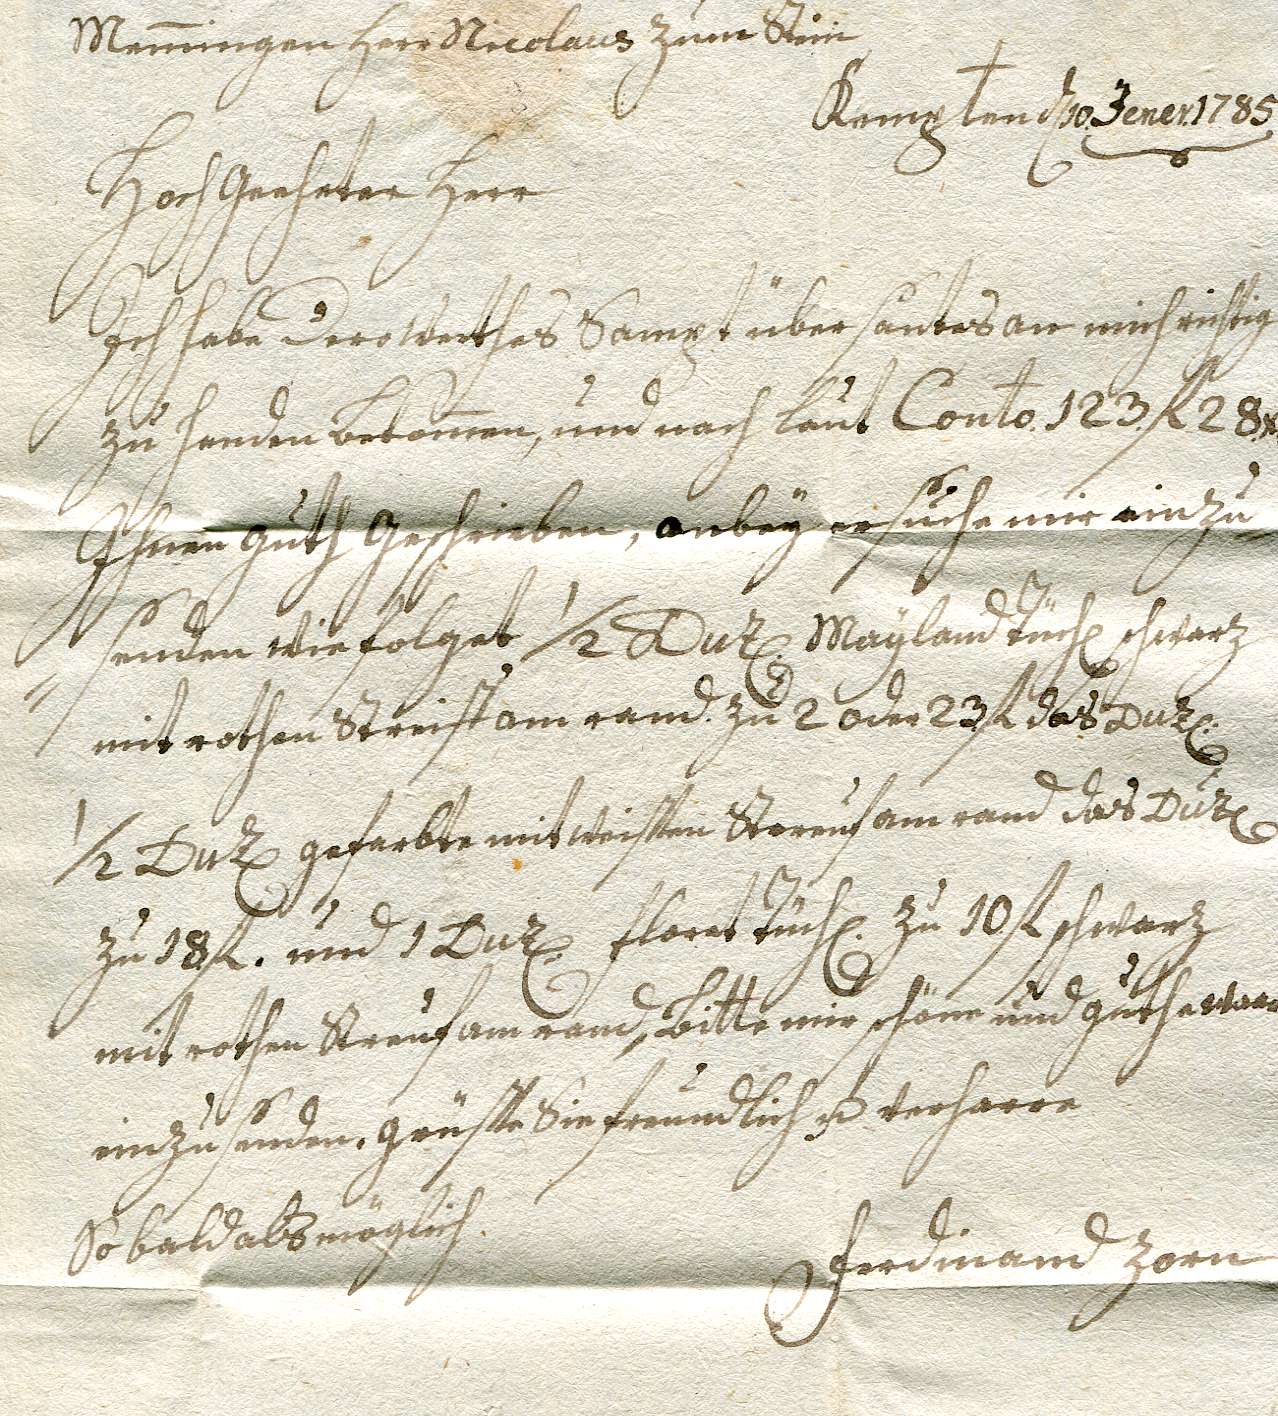 Mem̄ingen Herr Nicolaus zum Stein
Kempten d. 10. Jener. 1785
HochGeehrter Herr
Ich habe Dero werthes Sampt übersantes an mich richtig
zu handen bekom̄en, und nach laut Conto. 123 fl 28 x.
Ihnen guth Geschrieben, anbeÿ ersuche mir ein zu
senden wie folget 1/2 Duz. Maÿland Tüch. schwarz
mit rothen Streiff am rand. zu 2 oder 23 fl das Duz.
1/2 Duz gefarbte mit weissen Streuf am rand das Duz
zu 18 fl. und 1 Duz. floret Tüch. zu 10 fl schwarz
mit rothen Streuf am rand, Bitte mir schöne und guthe waar
einzusenden. grüsse Sie freundlich u verharre
So bald als möglich.
Ferdinand Zorn